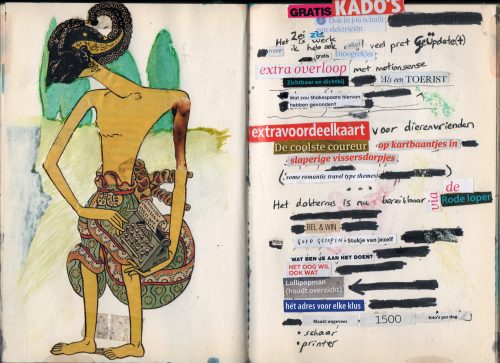 GRATIS KADO'S
Ook in jou schuilt
een elektricien
Het Zei zls
is werk
maar ik heb ook veel pret geüpdate(t)
gratis Droogvries
extra overloop met motionsense
Zichtbaar en dichtbij Als een TOERIST
Wat zou Shakespeare hiervan
hebben gevonden?
extravoordeelkaart voor dierenvrienden
De coolste coureur op kartbaantjes in
slaperige vissersdorpjes
(some romantic travel type themes)
...
Het dokterras is nu bereikbaar via de
Rode loper
BEL & WIN
GOED GELOPEN Stukje van jezelf
WAT BEN JE AAN HET DOEN?
HET OOG WIL
OOK WAT
Lollipopman
(houdt overzicht)
hét adres voor elke klus
Maakt ongeveer 1500 foto's per dag.
• schaar
• printer